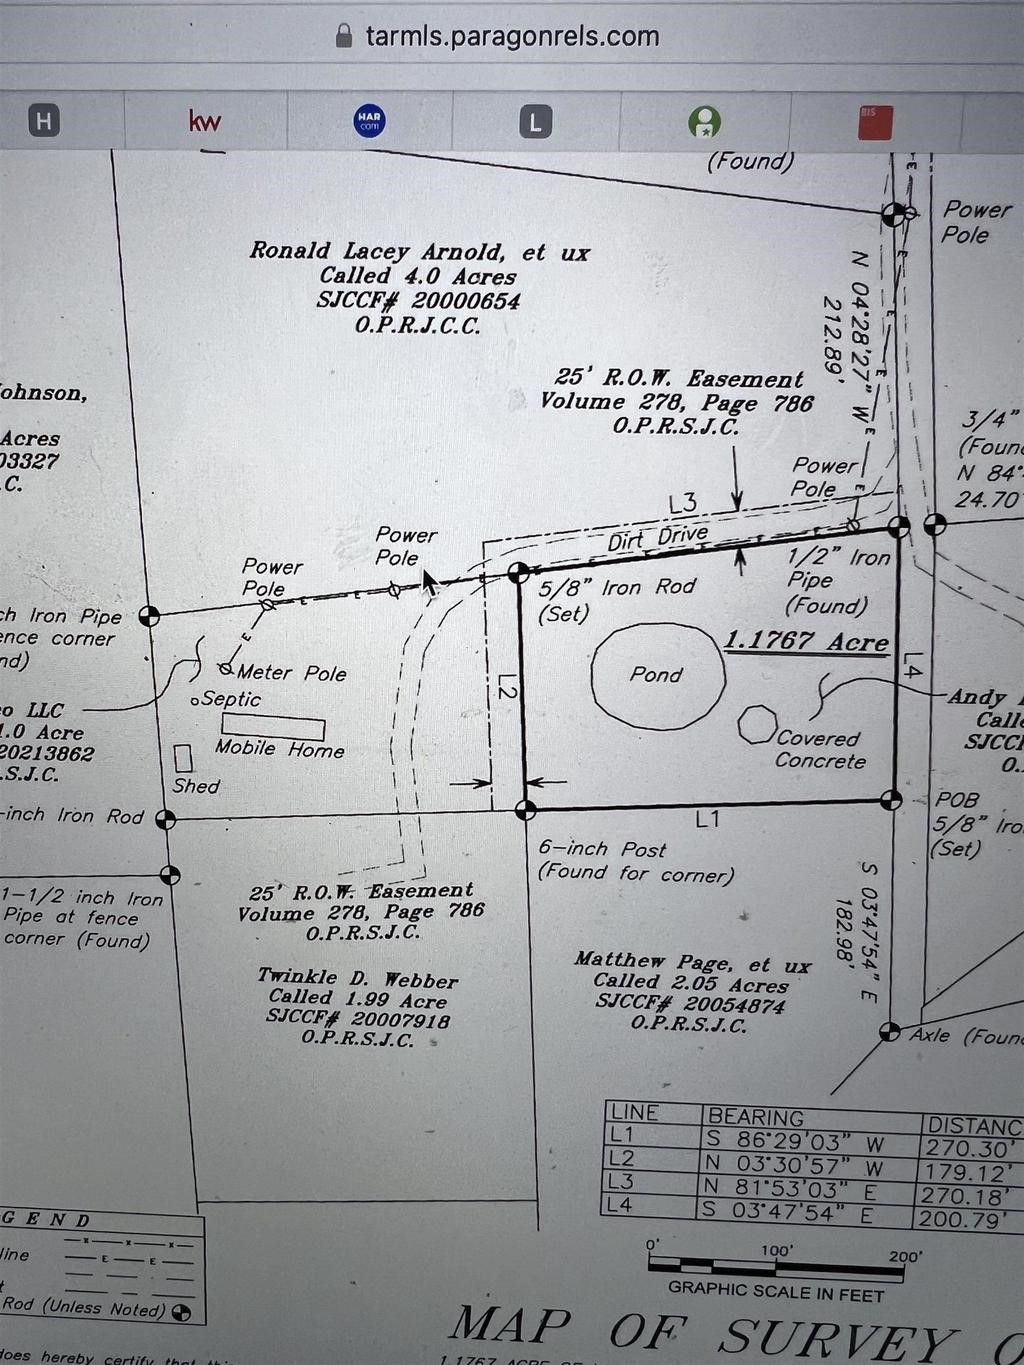 tarmls.paragonrels.com
H
kw
HAR
com
L
BIS
(Found)
E
Power
Pole
Ronald Lacey Arnold, et ux
Called 4.0 Acres
SJCCF# 20000654
O.P.R.J.C.C.
N 04°28'27" W
212.89'
25' R.O.W. Easement
Volume 278, Page 786
O.P.R.S.J.C.
ohnson,
Acres
03327
.C.
3/4"
(Foun
N 84°
24.70
Power
Pole
L3
Dirt Drive
Power
Pole
Power
Pole
1/2" Iron
Pipe
(Found)
5/8" Iron Rod
(Set)
ch Iron Pipe
ence corner
nd)
1.1767 Acre
L4
L2
Pond
Meter Pole
Septic
Mobile Home
Shed
o LLC
1.0 Acre
20213862
.S.J.C.
Covered
Concrete
Andy
Calle
SJCCF
O.
-inch Iron Rod
L1
POB
5/8" Iro
(Set)
6-inch Post
(Found for corner)
1-1/2 inch Iron
Pipe at fence
corner (Found)
25' R.O.W. Easement
Volume 278, Page 786
O.P.R.S.J.C.
S 03°47'54" E
182.98'
Twinkle D. Webber
Called 1.99 Acre
SJCCF# 20007918
O.P.R.S.J.C.
Matthew Page, et ux
Called 2.05 Acres
SJCCF# 20054874
O.P.R.S.J.C.
Axle (Foun
LINE BEARING DISTANC
L1 S 86°29'03" W 270.30'
L2 N 03°30'57" W 179.12'
L3 N 81°53'03" E 270.18'
L4 S 03°47'54" E 200.79'
GEND
line
t
Rod (Unless Noted)
0' 100' 200'
GRAPHIC SCALE IN FEET
MAP OF SURVEY O
does hereby certify that this